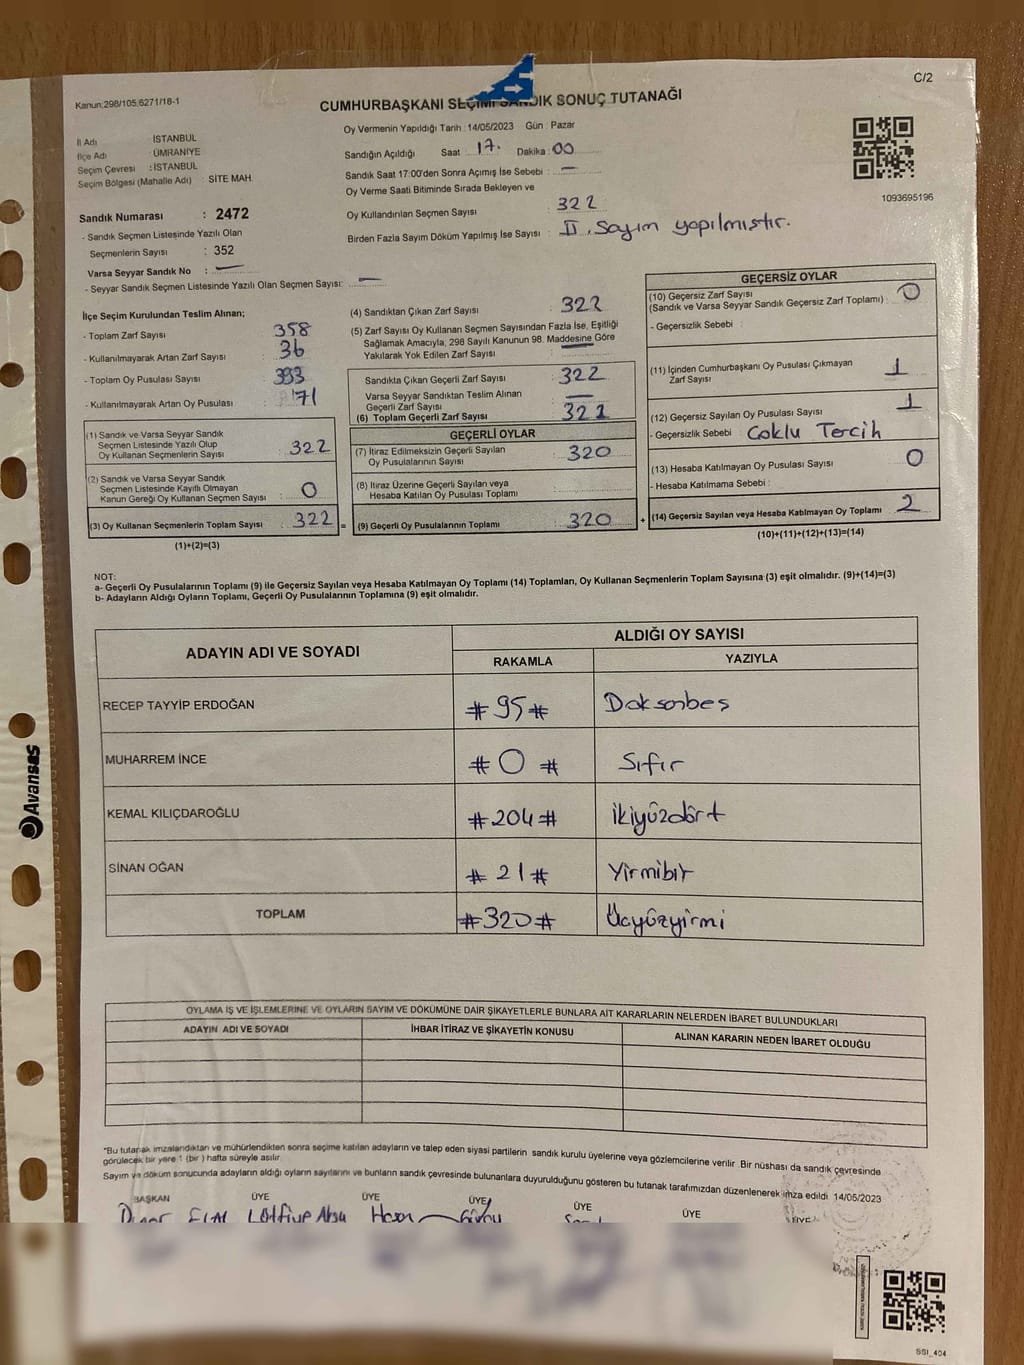 C/2
Kanun:298/105.6271/18-1
CUMHURBAŞKANI SEÇİMİ SANDIK SONUÇ TUTANAĞI
İl Adı : İSTANBUL
İlçe Adı : ÜMRANİYE
Seçim Çevresi : İSTANBUL
Seçim Bölgesi (Mahalle Adı) : SİTE MAH.
Oy Vermenin Yapıldığı Tarih : 14/05/2023 Gün : Pazar
Sandığın Açıldığı Saat : 17. Dakika : 00
Sandık Saat 17:00'den Sonra Açımış İse Sebebi : —
Oy Verme Saati Bitiminde Sırada Bekleyen ve
Oy Kullandırılan Seçmen Sayısı : 322
Birden Fazla Sayım Döküm Yapılmış İse Sayısı : II. Sayım yapılmıştır.
1093695196
Sandık Numarası : 2472
- Sandık Seçmen Listesinde Yazılı Olan
Seçmenlerin Sayısı : 352
Varsa Seyyar Sandık No : —
- Seyyar Sandık Seçmen Listesinde Yazılı Olan Seçmen Sayısı: —
İlçe Seçim Kurulundan Teslim Alınan;
- Toplam Zarf Sayısı : 358
- Kullanılmayarak Artan Zarf Sayısı : 36
- Toplam Oy Pusulası Sayısı : 393
- Kullanılmayarak Artan Oy Pusulası : 71
(1) Sandık ve Varsa Seyyar Sandık
Seçmen Listesinde Yazılı Olup
Oy Kullanan Seçmenlerin Sayısı : 322
(2) Sandık ve Varsa Seyyar Sandık
Seçmen Listesinde Kayıtlı Olmayan
Kanun Gereği Oy Kullanan Seçmen Sayısı : 0
(3) Oy Kullanan Seçmenlerin Toplam Sayısı : 322 =
(1)+(2)=(3)
(4) Sandıktan Çıkan Zarf Sayısı : 322
(5) Zarf Sayısı Oy Kullanan Seçmen Sayısından Fazla İse, Eşitliği
Sağlamak Amacıyla, 298 Sayılı Kanunun 98. Maddesine Göre
Yakılarak Yok Edilen Zarf Sayısı :
Sandıkta Çıkan Geçerli Zarf Sayısı : 322
Varsa Seyyar Sandıktan Teslim Alınan
Geçerli Zarf Sayısı : —
(6) Toplam Geçerli Zarf Sayısı : 322
GEÇERLİ OYLAR
(7) İtiraz Edilmeksizin Geçerli Sayılan
Oy Pusulalarının Sayısı : 320
(8) İtiraz Üzerine Geçerli Sayılan veya
Hesaba Katılan Oy Pusulası Toplamı :
(9) Geçerli Oy Pusulalarının Toplamı : 320 +
GEÇERSİZ OYLAR
(10) Geçersiz Zarf Sayısı
(Sandık ve Varsa Seyyar Sandık Geçersiz Zarf Toplamı) : 0
- Geçersizlik Sebebi :
(11) İçinden Cumhurbaşkanı Oy Pusulası Çıkmayan
Zarf Sayısı : 1
(12) Geçersiz Sayılan Oy Pusulası Sayısı : 1
- Geçersizlik Sebebi : Çoklu Tercih
(13) Hesaba Katılmayan Oy Pusulası Sayısı : 0
- Hesaba Katılmama Sebebi :
(14) Geçersiz Sayılan veya Hesaba Katılmayan Oy Toplamı : 2
(10)+(11)+(12)+(13)=(14)
NOT:
a- Geçerli Oy Pusulalarının Toplamı (9) ile Geçersiz Sayılan veya Hesaba Katılmayan Oy Toplamı (14) Toplamları, Oy Kullanan Seçmenlerin Toplam Sayısına (3) eşit olmalıdır. (9)+(14)=(3)
b- Adayların Aldığı Oyların Toplamı, Geçerli Oy Pusulalarının Toplamına (9) eşit olmalıdır.
ADAYIN ADI VE SOYADI
ALDIĞI OY SAYISI
RAKAMLA YAZIYLA
RECEP TAYYİP ERDOĞAN #95# Doksanbeş
MUHARREM İNCE #0# Sıfır
KEMAL KILIÇDAROĞLU #204# İkiyüzdört
SİNAN OĞAN #21# Yirmibir
TOPLAM #320# Üçyüzyirmi
OYLAMA İŞ VE İŞLEMLERİNE VE OYLARIN SAYIM VE DÖKÜMÜNE DAİR ŞİKAYETLERLE BUNLARA AİT KARARLARIN NELERDEN İBARET BULUNDUKLARI
ADAYIN ADI VE SOYADI İHBAR İTİRAZ VE ŞİKAYETİN KONUSU ALINAN KARARIN NEDEN İBARET OLDUĞU
*Bu tutanak imzalandıktan ve mühürlendikten sonra seçime katılan adayların ve talep eden siyasi partilerin sandık kurulu üyelerine veya gözlemcilerine verilir. Bir nüshası da sandık çevresinde
görülecek bir yere 1 (bir) hafta süreyle asılır.
Sayım ve döküm sonucunda adayların aldığı oyların sayılarını ve bunların sandık çevresinde bulunanlara duyurulduğunu gösteren bu tutanak tarafımızdan düzenlenerek imza edildi. 14/05/2023
BAŞKAN ÜYE ÜYE ÜYE ÜYE ÜYE ÜYE
Lütfiye Aksu Hasan
Avansas
SSI_404